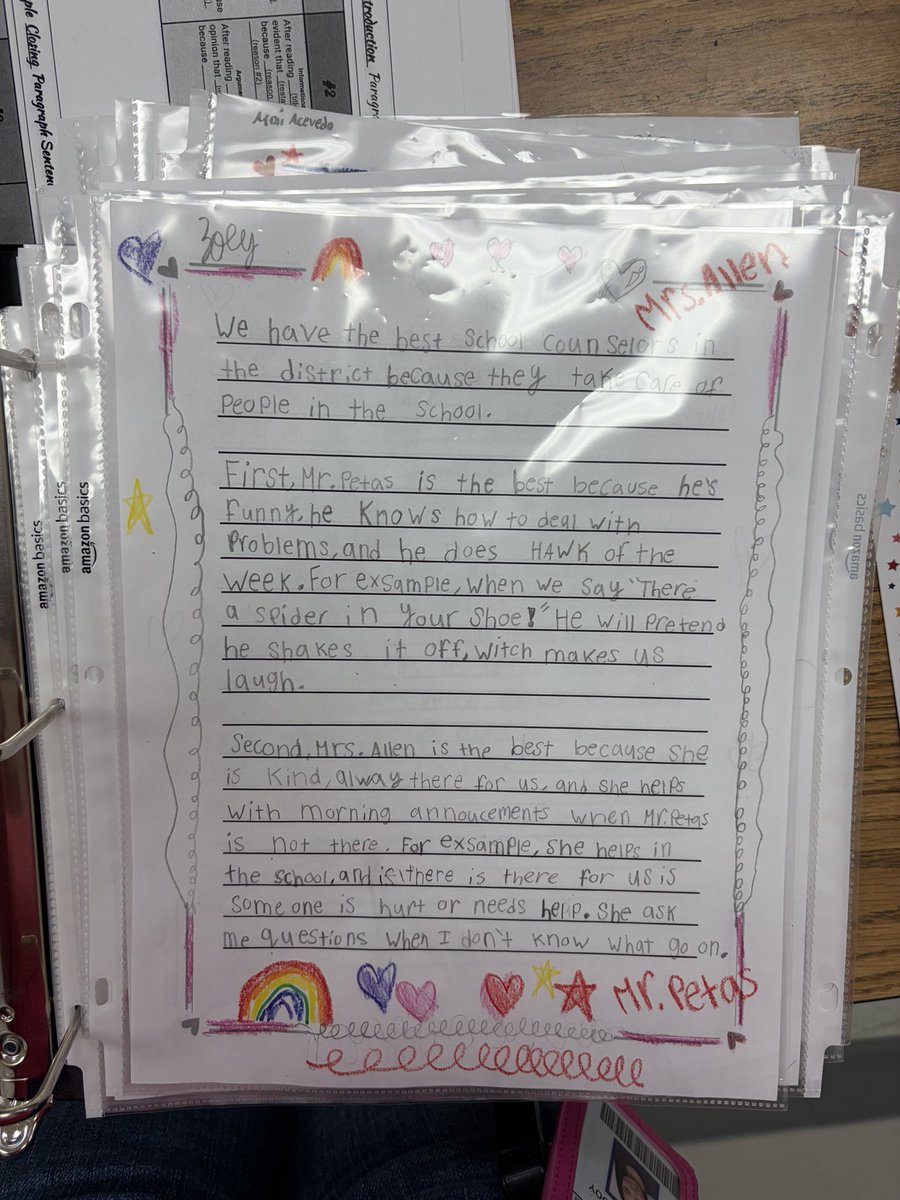 ple Closing Paragraph Senten
troduction Paragra
#2
After reading
evident that
because
(reason #2)
After reading
opinion that
because
Mari Acevedo
Zoey
Mrs. Allen
We have the best School Counselors in
the district because they take care of
People in the School.
First, Mr. Petas is the best because he's
funny, he Knows how to deal with
Problems, and he does HAWK of the
week. For exsample, when we say "There
a spider in your shoe!" He will Pretend
he shakes it off, witch makes us
laugh.
Second, Mrs. Allen is the best because she
is kind, alway there for us, and she helps
with morning annoucements when Mr. Petas
is not there. For exsample, she helps in
the school, and is there is there for us is
some one is hurt or needs help. She ask
me questions when I don't know what go on.
Mr. Petas
amazon basics
amazon basics
amazon basics
amazon basics